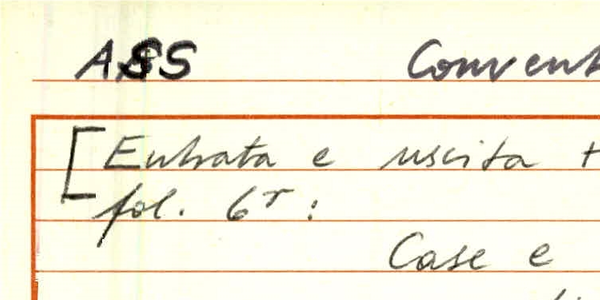 ASS Convent
[Entrata e uscita
fol. 6r:
Case e